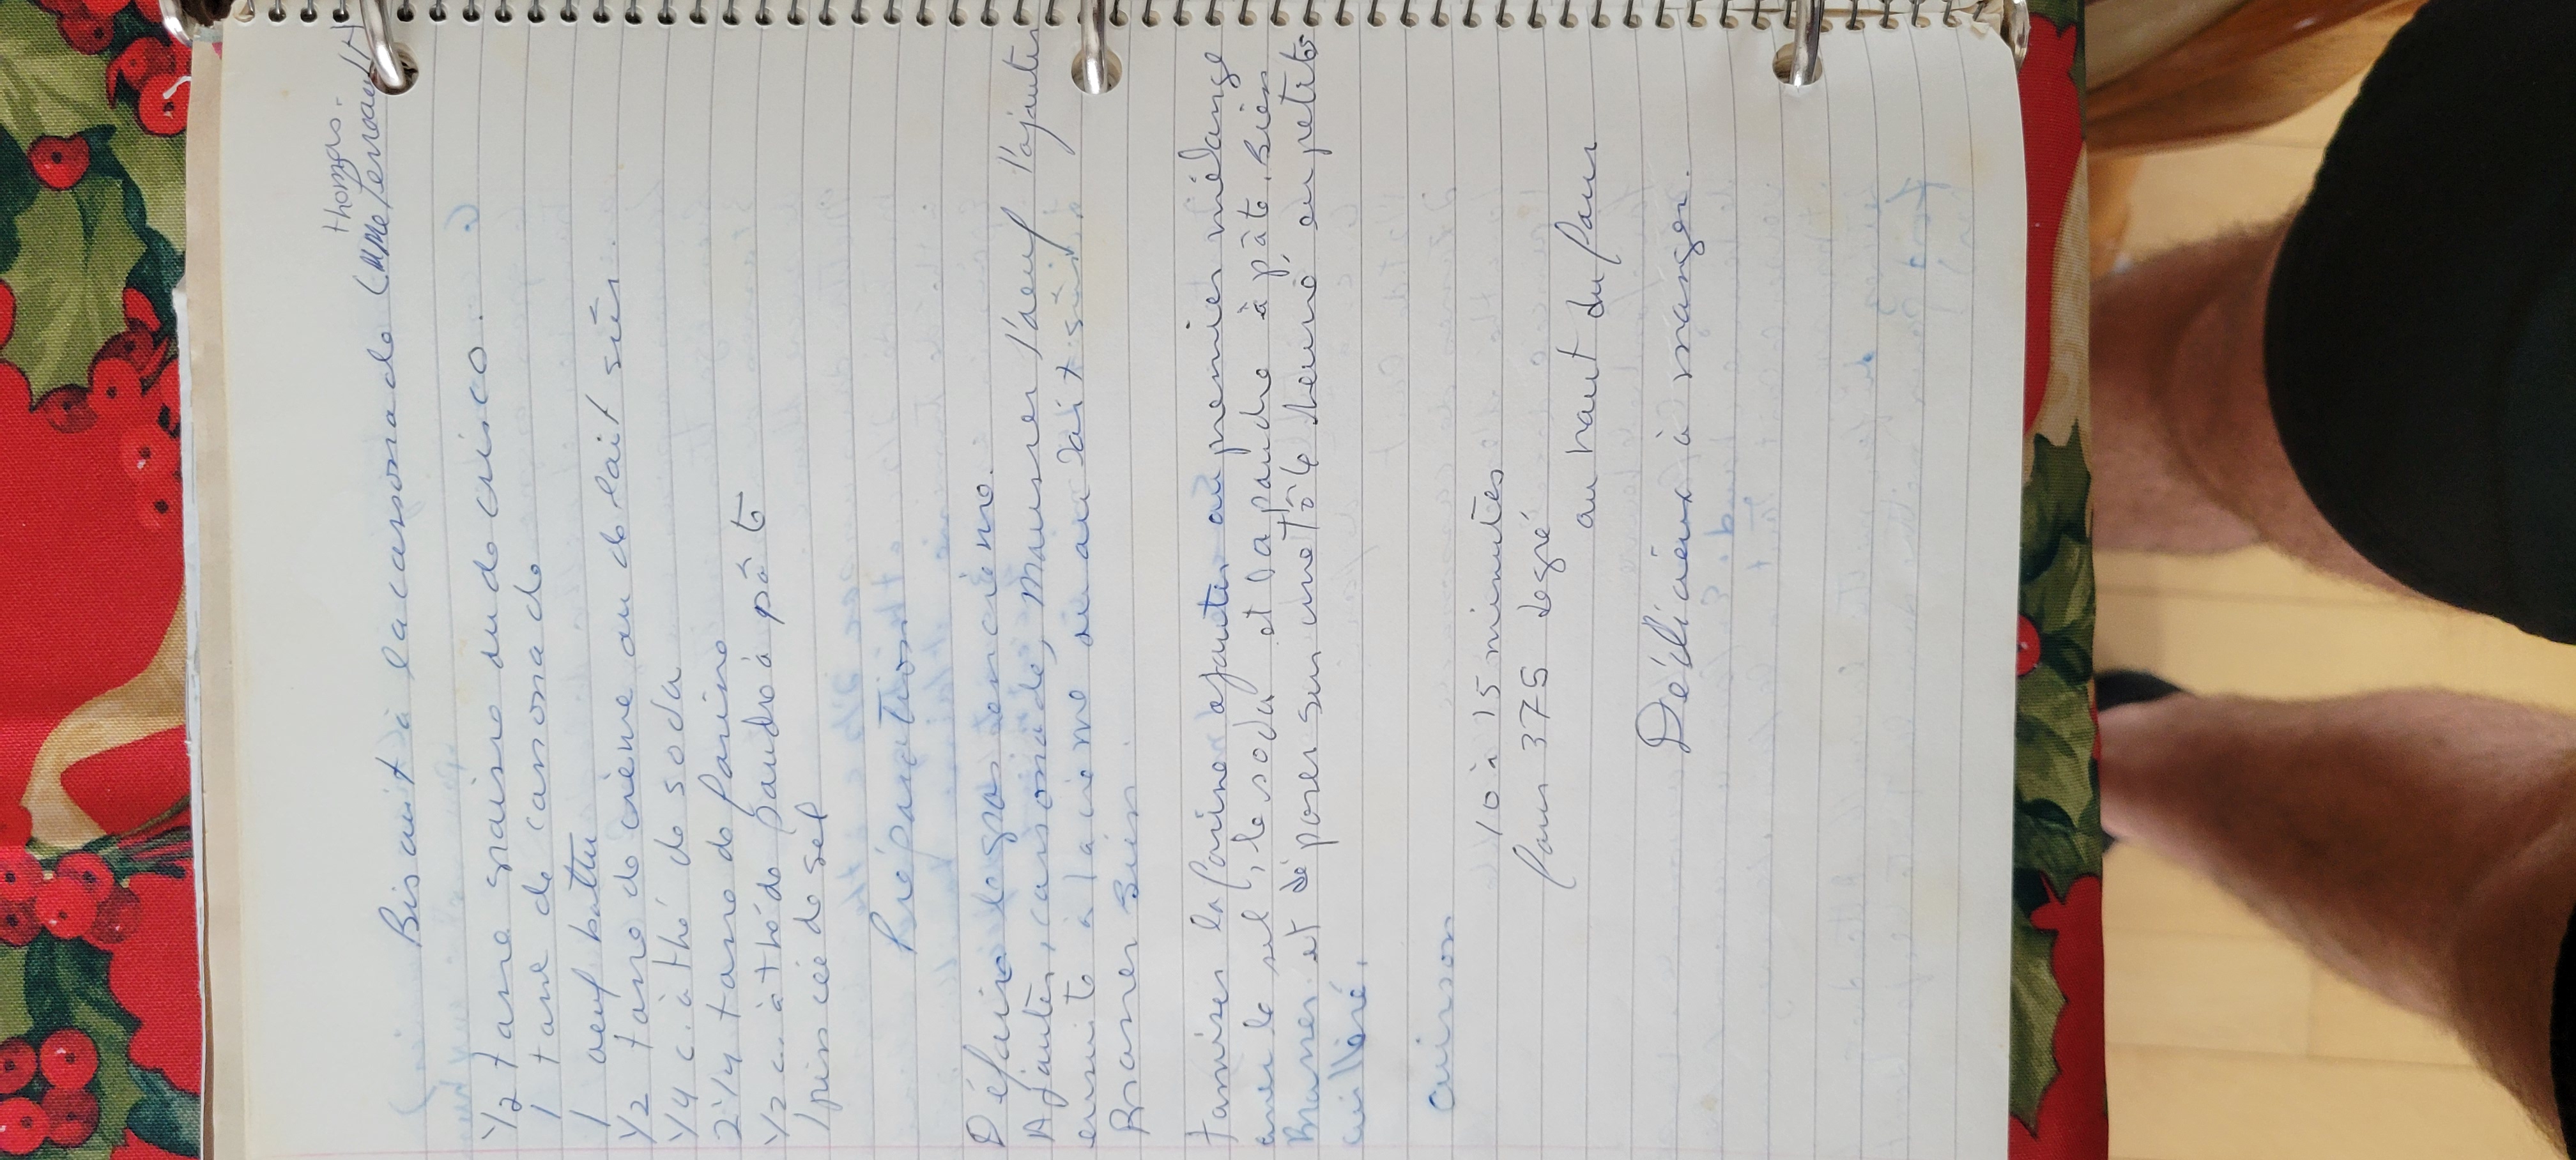 Thomas.
Biscuit à la cassonade (MMe Perrault)
1/2 tasse graisse ou de crisco.
1 tasse de cassonade
1 oeuf battu
1/2 tasse de crème ou de lait sûr.
1/4 c. à thé de soda
2 1/4 tasse de farine
1/2 c. à thé de poudre à pâte
1 pincée de sel
Préparation
Défaire le gras en crème.
Ajouter, cassonade, mousser l'oeuf l'ajouter
ensuite à la crème ou au lait sûr.
Brasser bien.
Tamiser la farine ajouter au premier mélange
avec le sel, le soda et la poudre à pâte. Bien
Brasser et déposer sur une tôle beurré en petite
cuilléré.
cuisson
10 à 15 minutes
four 375 degré
au haut du four
Délicieux à manger.